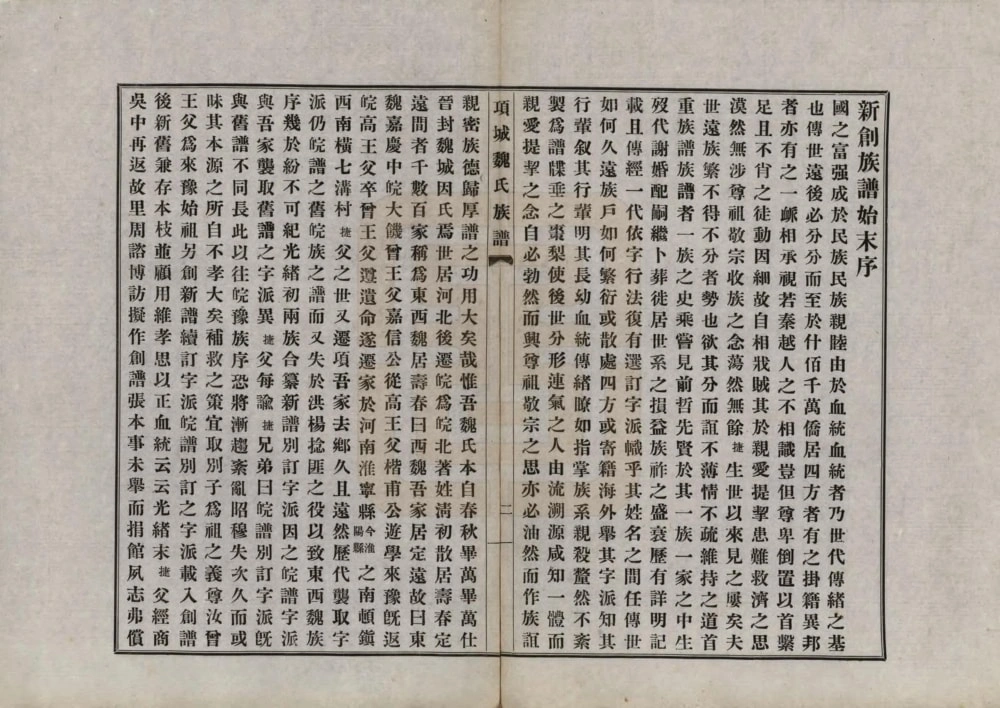 新創族譜始末序
國之富强成於民族民族親睦由於血統血統者乃世代傳緒之基
也傳世遠後必分分而至於什佰千萬僑居四方者有之掛籍異邦
者亦有之一嶥相承視若秦越人之不相識豈但尊卑倒置以首繫
足且不肖之徒動因細故自相戕賊其於親愛提挈患難救濟之思
漠然無涉尊祖敬宗收族之念蕩然無餘捷生世以來見之屢矣夫
世遠族繁不得不分者勢也欲其分而誼不薄情不疏維持之道首
重族譜族譜者一族之史乘嘗見前哲先賢於其一族一家之中生
歿代謝婚配嗣繼卜葬徙居世系之損益族祚之盛衰歷有詳明記
載且傳經一代依字行法復有選訂字派幟乎其姓名之間任傳世
如何久遠族戶如何繁衍或散處四方或寄籍海外舉其字派知其
行輩叙其行輩明其長幼血統傳緒瞭如指掌族系親殺釐然不紊
製爲譜牒垂之棗梨使後世分形連氣之人由流溯源咸知一體而
親愛提挈之念自必勃然而興尊祖敬宗之思亦必油然而作族誼
項城魏氏族譜
二
親密族德歸厚譜之功用大矣哉惟吾魏氏本自春秋畢萬畢萬仕
晉封魏城因氏焉世居河北後遷皖爲皖北著姓淸初散居壽春定
遠間者千數百家稱爲東西魏居壽春曰西魏吾家居定遠故曰東
魏嘉慶中皖大饑曾王父嘉信公從高王父楷甫公遊學來豫旣返
皖高王父卒曾王父遵遺命遂遷家於河南淮寧縣今淮陽縣之南頓鎭
西南橫七溝村捷父之世又遷項吾家去鄕久且遠然歷代襲取字
派仍皖譜之舊皖族之譜而又失於洪楊捻匪之役以致東西魏族
序幾於紛不可紀光緒初兩族合纂新譜別訂字派因之皖譜字派
與吾家襲取舊譜之字派異捷父每諭捷兄弟曰皖譜別訂字派旣
與舊譜不同長此以往皖豫族序恐將漸趨紊亂昭穆失次久而或
昧其本源之所自不孝大矣補救之策宜取別子爲祖之義尊汝曾
王父爲來豫始祖另創新譜續訂字派皖譜別訂之字派載入創譜
後新舊兼存本枝並顧用維孝思以正血統云云光緒末捷父經商
吳中再返故里周諮博訪擬作創譜張本事未舉而捐館夙志弗償